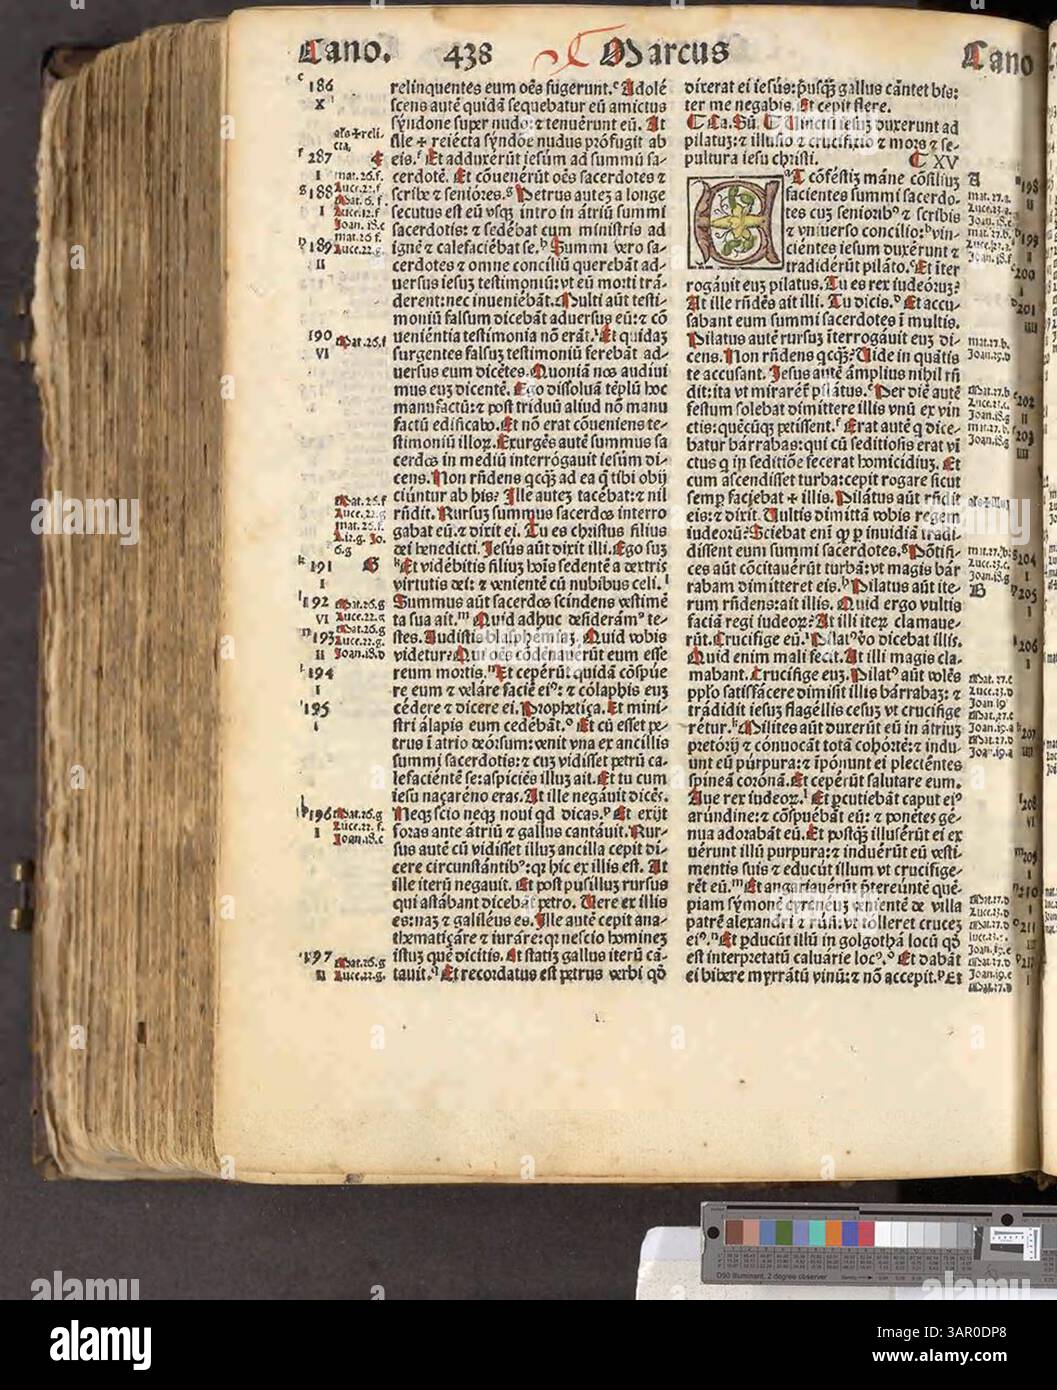 Cano. 438 Marcus Cano
relinquentes eum oēs fugerunt. Adolé
scens autē quidā sequebatur eū amictus
syndone super nudo: ⁊ tenuérunt eū. At
ille ✝ reiécta syndone nudus prófugit ab
eis. Et adduxérunt iesum ad summū sa-
cerdotē. Et cōuenérunt oēs sacerdotes ⁊
scribe ⁊ senióres. Petrus autez a longe
secutus est eū vsqz intro in átriū summi
sacerdotis: ⁊ sedébat cum ministris ad
ignē ⁊ calefaciébat se. Summi vero sa-
cerdotes ⁊ omne conciliū querebāt ad-
uersus iesuz testimoniū: vt eū morti trá-
derent: nec inueniébāt. Multi aūt testi-
moniū falsum dicebāt aduersus eū: ⁊ cō
uenientia testimonia nō erāt. Et quidaz
surgentes falsuz testimoniū ferebāt ad-
uersus eum dicētes. Quoniā nos audiui
mus euz dicentē. Ego dissoluā tēplū hoc
manufactū: ⁊ post triduū aliud nō manu
factū edificabo. Et nō erat cōueniens te-
stimoniū illoꝝ. Exurgēs autē summus sa
cerdos in mediū interrógauit iesum di-
cens. Non rñdens qcqz ad ea q̄ tibi obij
ciúntur ab his? Ille autez tacēbat: ⁊ nil
rñdit. Rursuz summus sacerdos interro
gabat eū: ⁊ dixit ei. Tu es christus filius
dei benedicti. Jesús aūt dixit illi. Ego suz
Et vidébitis filiuz hoīs sedentē a dextris
virtutis dei: ⁊ venientē cū nubibus celi.
Summus aūt sacerdos scindens vestimē
ta sua ait. Quid adhuc desiderám⁹ te-
stes. Audistis blasphemiaz. Quid vobis
videtur? Qui oēs cōdēnauerūt eum esse
reum mortis. Et cepérūt quidā cōspue
re eum ⁊ veláre faciē ei⁹: ⁊ cólaphis euz
cédere ⁊ dicere ei. Prophetiça. Et mini-
stri álapis eum cedēbāt. Et cū esset pe-
trus ī atrio deórsum: venit vna ex ancillis
summi sacerdotis: ⁊ cuz vidisset petrū ca-
lefaciéntē se: aspiciēs illuz ait. Et tu cum
iesu naçaréno eras. At ille negáuit dicēs.
Neqz scio neqz noui qd dicas. Et exijt
foras ante átriū ⁊ gallus cantáuit. Rur-
sus autē cū vidisset illuz ancilla cepit di-
cere circunstántib⁹: qꝛ hic ex illis est. At
ille iterū negauit. Et post pusilluz rursus
qui astábant dicebāt petro. Uere ex illis
es: naz ⁊ galiléus es. Ille autē cepit ana-
thematiçáre ⁊ iuráre: qꝛ nescio hominez
istuz quē dicitis. Et statiz gallus iterū cā-
tauit. Et recordatus est petrus verbi qd
dixerat ei iesús: p̄usqz gallus cāntet bis:
ter me negabis. Et cepit flere.
Ca. Sū. Uinctū iesuz duxerunt ad
pilatuz: ⁊ illusio ⁊ crucifixio ⁊ mors ⁊ se-
pultura iesu christi. XV
ET cōféstiz māne cōsiliuz
facientes summi sacerdo-
tes cuz seniorib⁹ ⁊ scribis
⁊ vniuerso concilio: vin-
ciéntes iesum duxérunt ⁊
tradidérūt piláto. Et īter
rogáuit euz pilatus. Tu es rex iudeóruz?
At ille rñdēs ait illi. Tu dicis. Et accu-
sabant eum summi sacerdotes ī multis.
Pilatus autē rursuz īterrogáuit euz di-
cens. Non rñdens qcqz? Uide in quātis
te accusant. Jesus autē ámplius nihil rñ
dit: ita vt mirarēt pilátus. Per diē autē
festum solebat dimittere illis vnū ex vin
ctis: quēcūqz petíssent. Erat autē q dice-
batur bárrabas: qui cū seditiosis erat vi
ctus q in seditiōe fecerat homicidiuz. Et
cum ascendisset turba: cepit rogare sicut
semp faciebat ✝ illis. Pilátus aūt rñdit
eis: ⁊ dixit. Uultis dimittā vobis regem
iudeorū? Sciebat enī qꝫ p inuidiā tradi-
dissent eum summi sacerdotes. Pōtifi-
ces aūt cōcitauérūt turbā: vt magis bár
rabam dimitteret eis. Pilatus aūt ite-
rum rñdens: ait illis. Quid ergo vultis
faciā regi iudeoꝝ? At illi iteꝝ clamaue-
rūt. Crucifige eū. Pilat⁹ ꝟo dicebat illis.
Quid enim mali fecit. At illi magis cla-
mabant. Crucifige euz. Pilat⁹ aūt volēs
pplo satisfácere dimisit illis bárrabaz: ⁊
trádidit iesuz flagéllis cesuz vt crucifige
rétur. Milites aūt duxerūt eū in atriuz
pretórij ⁊ cónuocāt totā cohórtē: ⁊ indu-
unt eū púrpura: ⁊ īpónunt ei plectēntes
spineā coronā. Et cepérūt salutare eum.
Aue rex iudeoꝝ. Et pcutiebāt caput ei⁹
arúndine: ⁊ cōspuébāt eū: ⁊ ponétes gé-
nua adorabāt eū. Et postqz illusérūt ei ex
uérunt illū purpura: ⁊ induérūt eū vesti-
mentis suis ⁊ educūt illum vt crucifige-
rēt eū. Et angariauérūt p̄tereúntē qué-
piam symonē cyrenéuz veniéntē de villa
patrē alexandri ⁊ rufi: vt tólleret crucez
ei⁹. Et pducūt illū in golgothā locū qd
est interpretatū caluárie loc⁹. Et dabāt
ei bibere myrrátū vinū: ⁊ nō accepit. Et
186
X
287
I
188
I
189
II
190
VI
191
I
192
VI
193
II
194
I
195
I
196
I
197
II
A
B
alamy
Image ID: 3AR0DP8
www.alamy.com